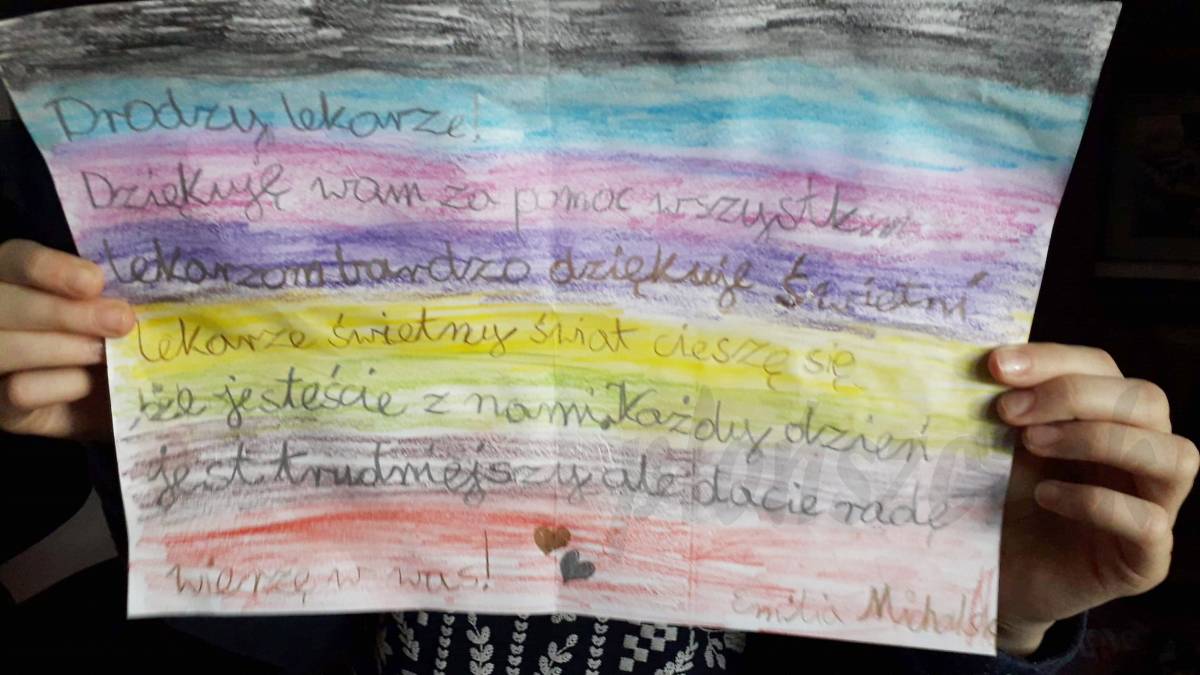 Drodzy, lekarze!
Dziękuję wam za pomoc wszystkim
lekarzom bardzo dziękuję świetni
lekarze świetny świat cieszę się
,że jesteście z nami. Każdy dzień
jest trudniejszy ale dacie radę
wierzę w was!
Emilia Michalska